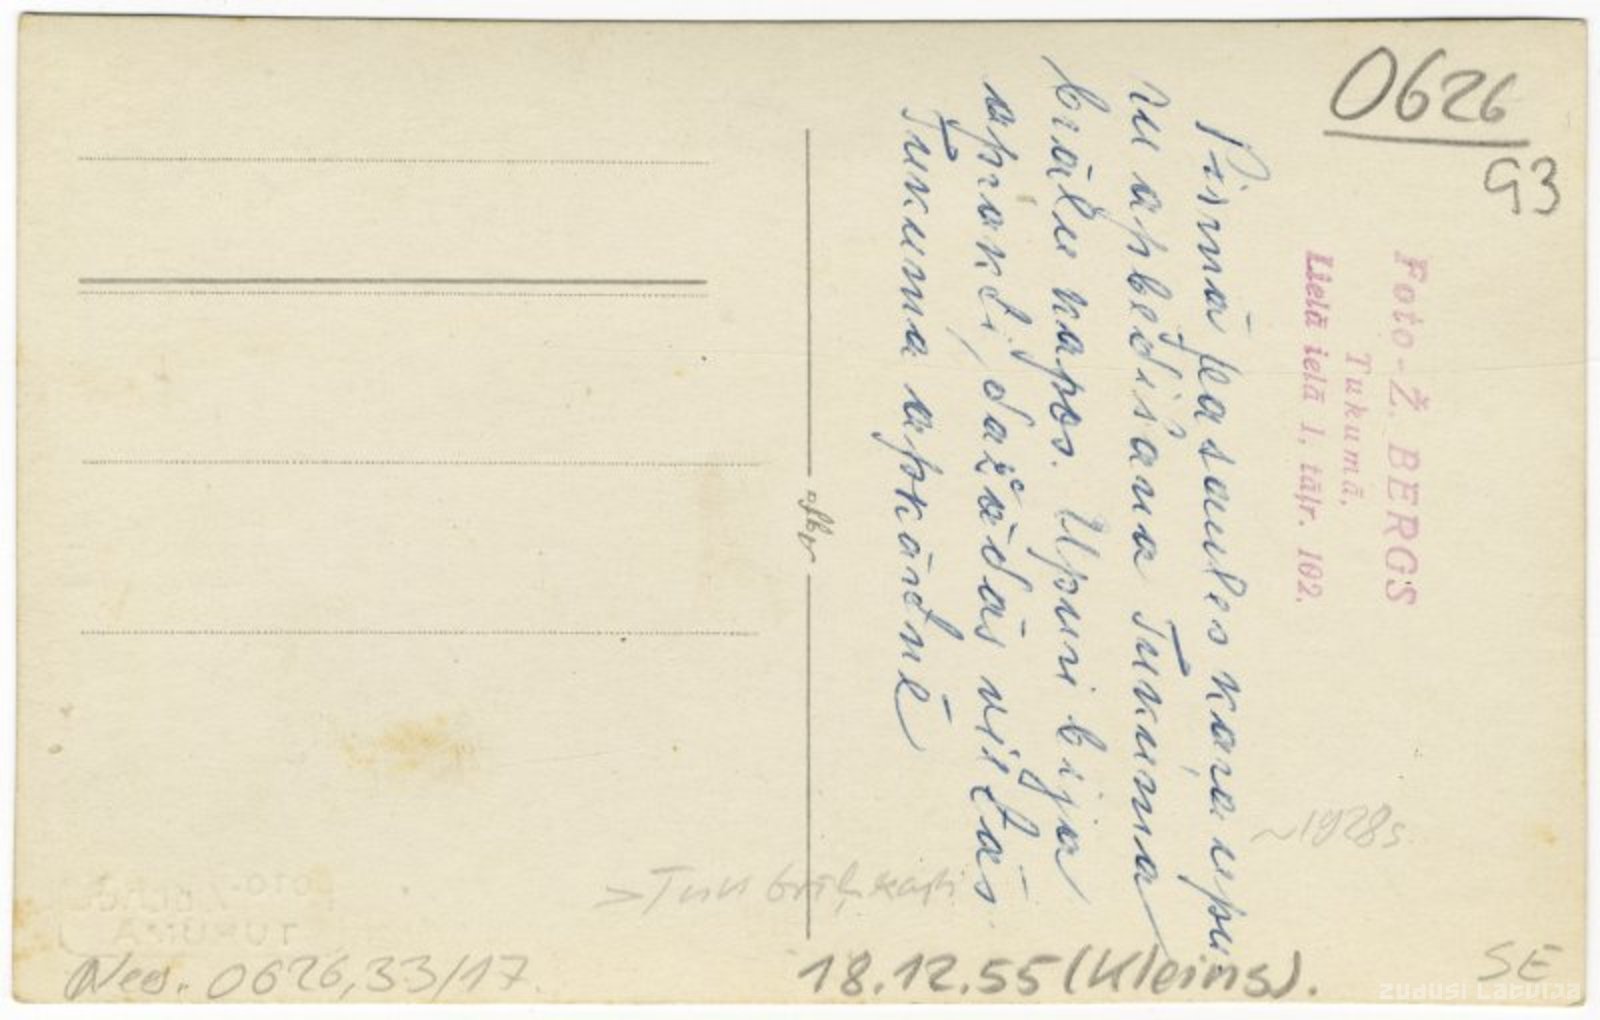 0626
G3
Foto-Ž. BERGS
Tukumā,
Lielā ielā 1, tāļr. 102.
Pirmā pasaules kaŗa upu-
ru apbēdīšana Tukuma
brāļu kapos. Upuri bija
aprakti, dažādās vietās
Tukuma apkārtnē
~1928s
>Tuk brāļ kapi
Neg. 0626,33/17.
18.12.55 (Kleins).
SE
zudusi Latvija